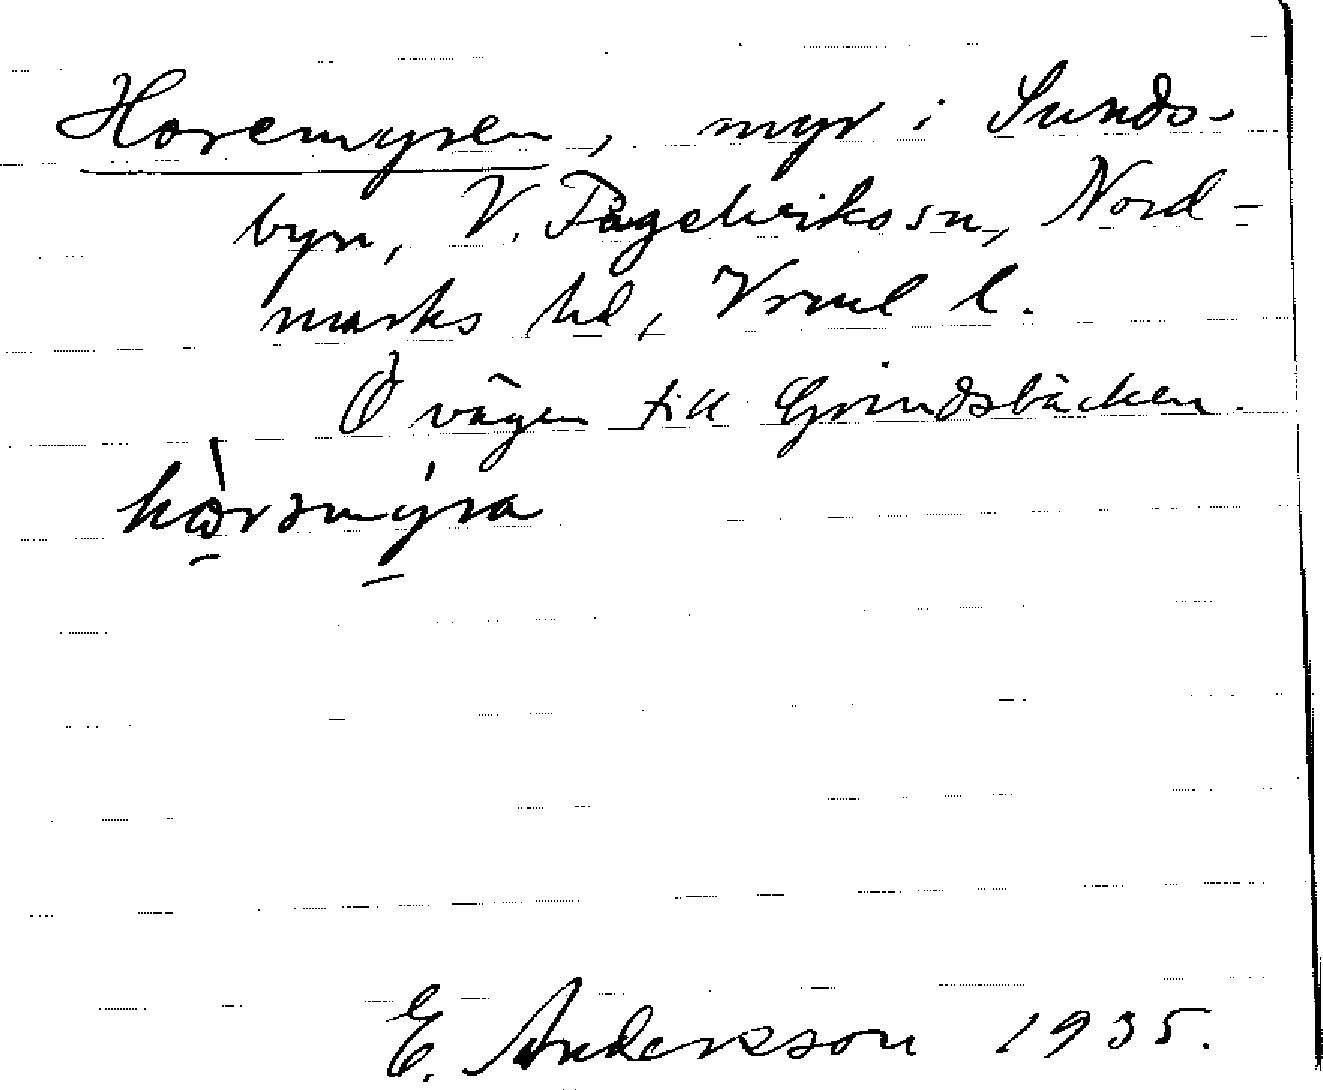 Horemyren, myr i Sunds-
byn, V. Fågelvikssn, Nord-
marks hd, Vrml l.
Ö vägen till Grindsbäcken.
E. Andersson 1935.